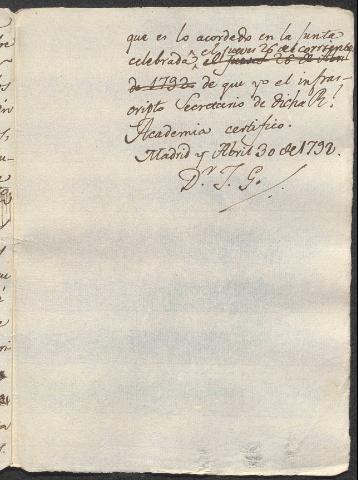 que es lo acordado en la Junta
celebrada el jueves 26 del corriente
el jueves 26 de Abril
de 1792 de que yo el infras-
cripto Secretario de dicha Rl.
Academia certifico.
Madrid y Abril 30 de 1792.
Dr. J. G.